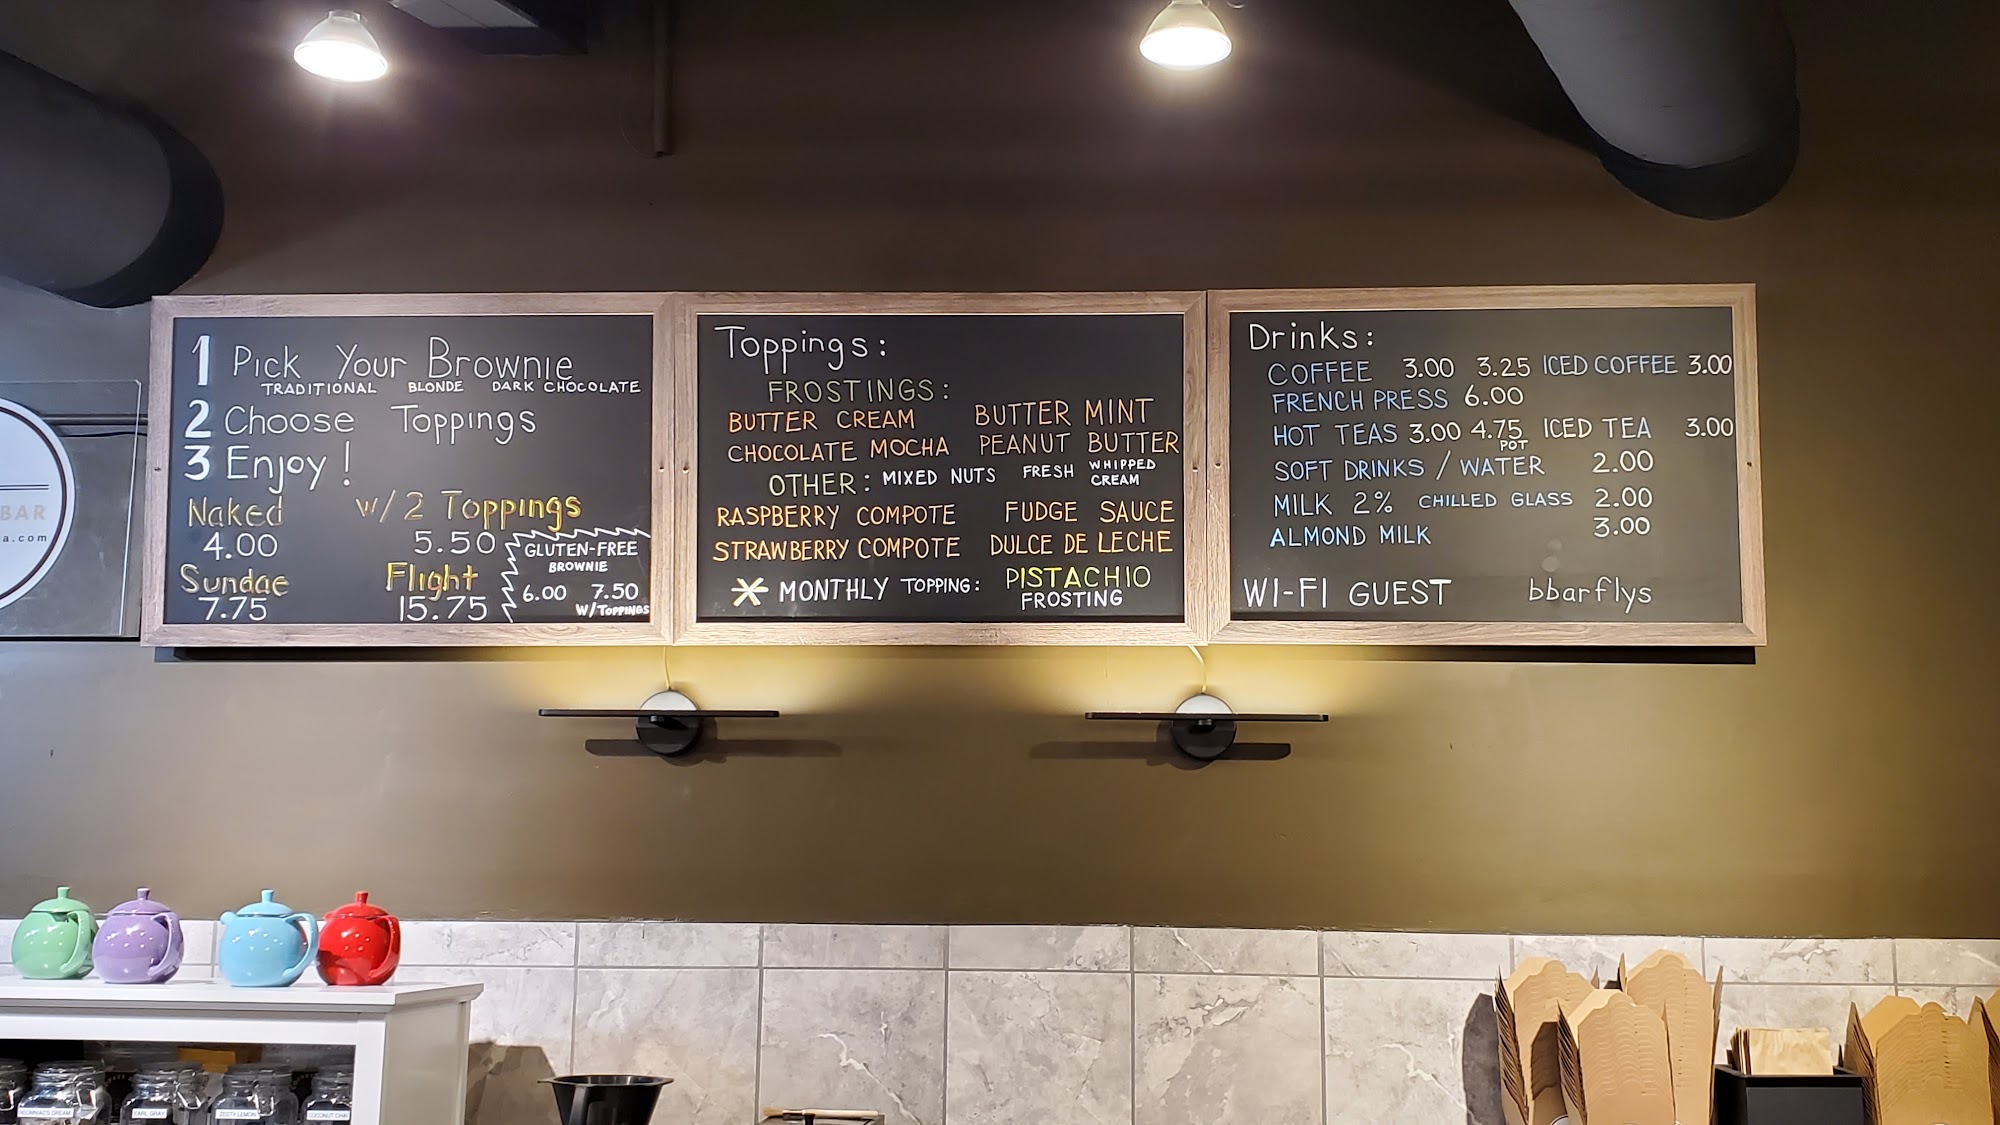 1 Pick Your Brownie
TRADITIONAL BLONDE DARK CHOCOLATE
2 Choose Toppings
3 Enjoy!
Naked w/2 Toppings
4.00 5.50
Sundae Flight
7.75 15.75
GLUTEN-FREE
BROWNIE
6.00 7.50
W/TOPPINGS
Toppings:
FROSTINGS:
BUTTER CREAM BUTTER MINT
CHOCOLATE MOCHA PEANUT BUTTER
OTHER: MIXED NUTS FRESH WHIPPED CREAM
RASPBERRY COMPOTE FUDGE SAUCE
STRAWBERRY COMPOTE DULCE DE LECHE
* MONTHLY TOPPING: PISTACHIO
FROSTING
Drinks:
COFFEE 3.00 3.25 ICED COFFEE 3.00
FRENCH PRESS 6.00
HOT TEAS 3.00 4.75 POT ICED TEA 3.00
SOFT DRINKS / WATER 2.00
MILK 2% CHILLED GLASS 2.00
ALMOND MILK 3.00
WI-FI GUEST bbarflys
BAR
a.com
EARL GRAY
ZESTY LEMON
COCONUT CHAI